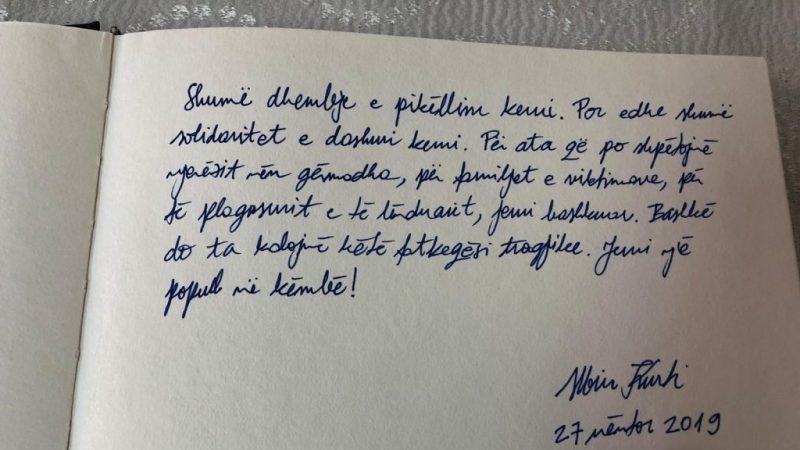 Shumë dhembje e pikëllim kemi. Por edhe shumë
solidaritet e dashuri kemi. Për ata që po shpëtojnë
njerëzit nën gërmadha, për familjet e viktimave, për
të plagosurit e të lënduarit, jemi bashkuar. Bashkë
do ta kalojmë këtë fatkeqësi tragjike. Jemi një
popull në këmbë!
Albin Kurti
27 nëntor 2019